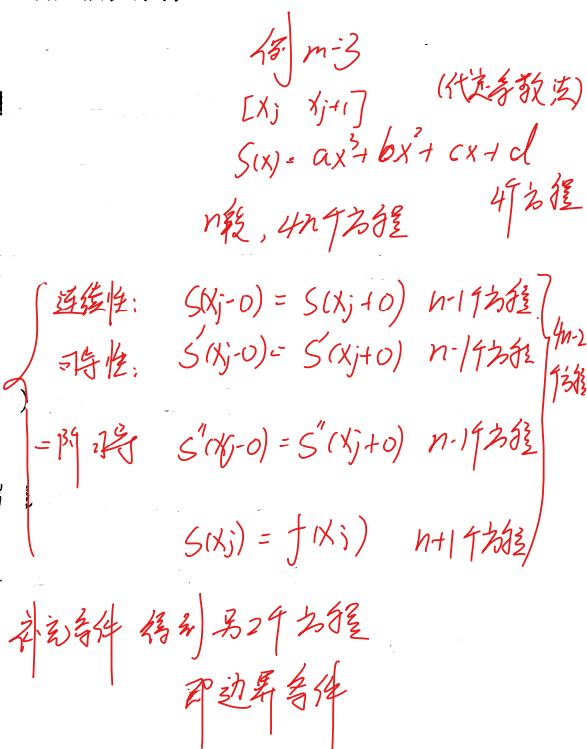 例 m=3
[xj xj+1] (待定系数法)
S(x)= ax³+bx²+cx+d
4个方程
n段, 4n个方程
连续性: S(xj-0) = S(xj+0) n-1个方程
可导性: S'(xj-0) = S'(xj+0) n-1个方程
4n-2个方程
二阶可导 S''(xj-0) = S''(xj+0) n-1个方程
S(xj) = f(xj) n+1个方程
补充条件 得到另2个方程
即边界条件